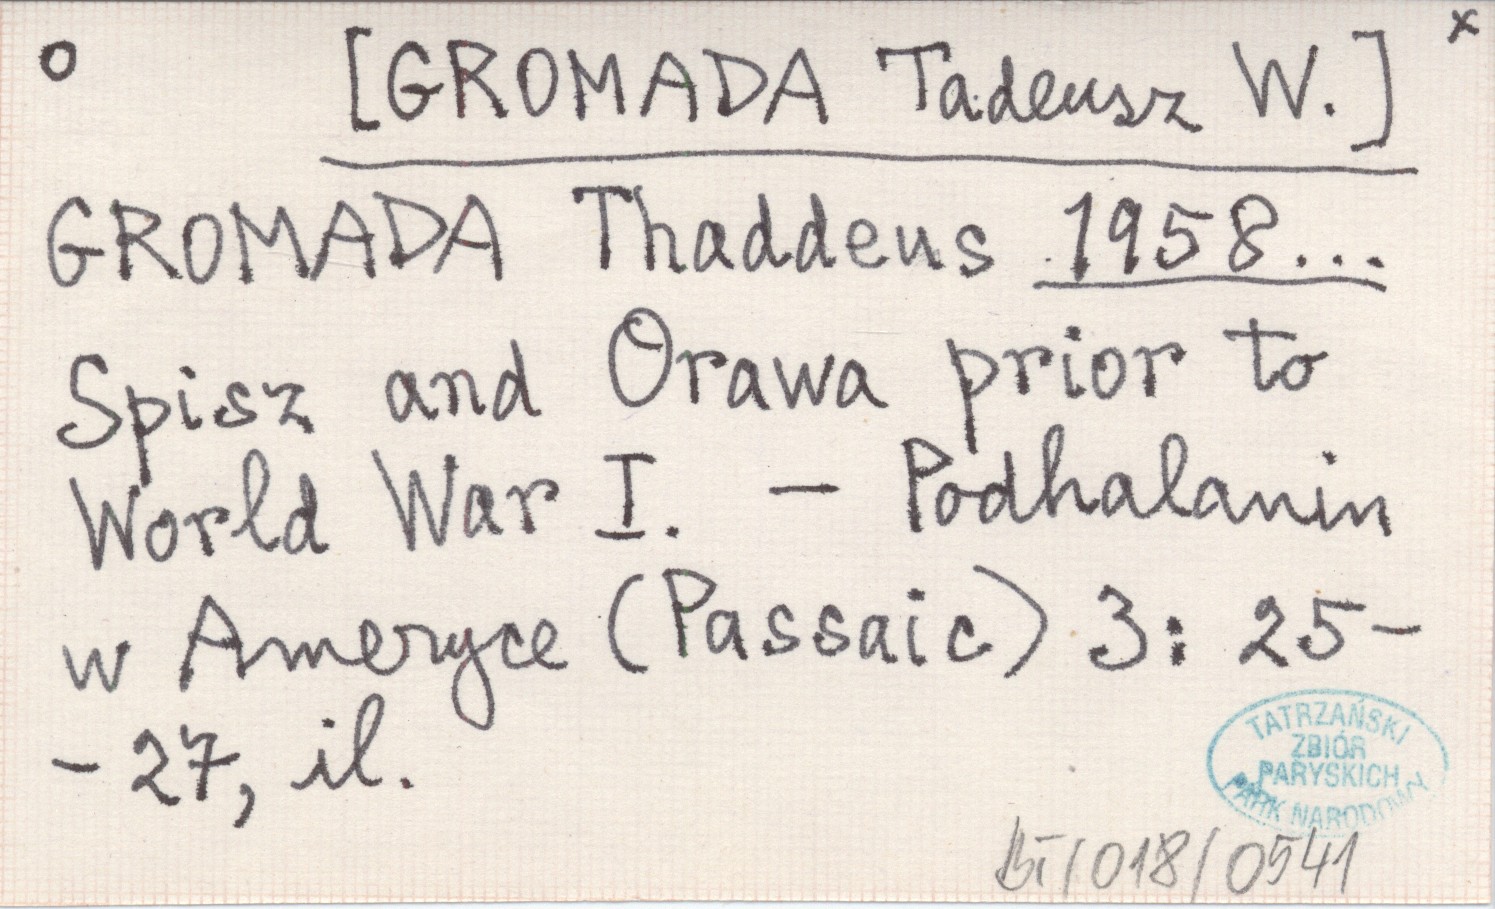 o [GROMADA Tadeusz W.] x
GROMADA Thaddeus 1958...
Spisz and Orawa prior to
World War I. — Podhalanin
w Ameryce (Passaic) 3: 25-
- 27, il.
TATRZAŃSKI
ZBIÓR
PARYSKICH
PARK NARODOWY
BT/018/0541